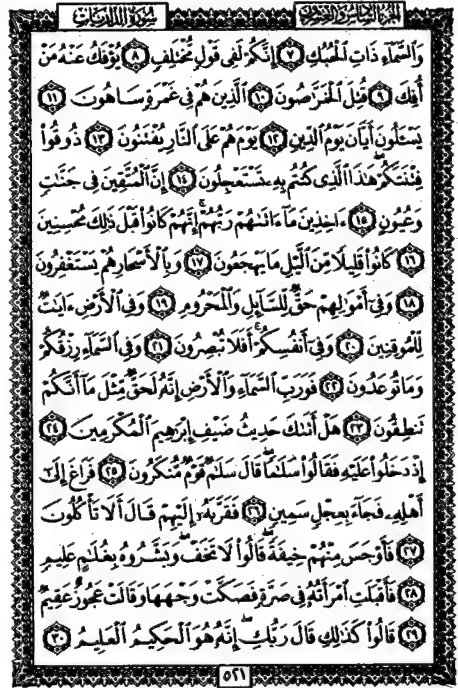 الجزء السادس والعشرون
سورة الذاريات
وَالسَّمَآءِ ذَاتِ الْحُبُكِ ﴿٧﴾ إِنَّكُمْ لَفِى قَوْلٍ مُّخْتَلِفٍ ﴿٨﴾ يُؤْفَكُ عَنْهُ مَنْ
أُفِكَ ﴿٩﴾ قُتِلَ الْخَرَّٰصُونَ ﴿١٠﴾ الَّذِينَ هُمْ فِى غَمْرَةٍ سَاهُونَ ﴿١١﴾
يَسْـَٔلُونَ أَيَّانَ يَوْمُ الدِّينِ ﴿١٢﴾ يَوْمَ هُمْ عَلَى النَّارِ يُفْتَنُونَ ﴿١٣﴾ ذُوقُوا۟
فِتْنَتَكُمْ هَٰذَا الَّذِى كُنتُم بِهِۦ تَسْتَعْجِلُونَ ﴿١٤﴾ إِنَّ الْمُتَّقِينَ فِى جَنَّٰتٍ
وَعُيُونٍ ﴿١٥﴾ ءَاخِذِينَ مَآ ءَاتَىٰهُمْ رَبُّهُمْ ۚ إِنَّهُمْ كَانُوا۟ قَبْلَ ذَٰلِكَ مُحْسِنِينَ
﴿١٦﴾ كَانُوا۟ قَلِيلًا مِّنَ الَّيْلِ مَا يَهْجَعُونَ ﴿١٧﴾ وَبِالْأَسْحَارِ هُمْ يَسْتَغْفِرُونَ
﴿١٨﴾ وَفِىٓ أَمْوَٰلِهِمْ حَقٌّ لِّلسَّآئِلِ وَالْمَحْرُومِ ﴿١٩﴾ وَفِى الْأَرْضِ ءَايَٰتٌ
لِّلْمُوقِنِينَ ﴿٢٠﴾ وَفِىٓ أَنفُسِكُمْ ۚ أَفَلَا تُبْصِرُونَ ﴿٢١﴾ وَفِى السَّمَآءِ رِزْقُكُمْ
وَمَا تُوعَدُونَ ﴿٢٢﴾ فَوَرَبِّ السَّمَآءِ وَالْأَرْضِ إِنَّهُۥ لَحَقٌّ مِّثْلَ مَآ أَنَّكُمْ
تَنطِقُونَ ﴿٢٣﴾ هَلْ أَتَىٰكَ حَدِيثُ ضَيْفِ إِبْرَٰهِيمَ الْمُكْرَمِينَ ﴿٢٤﴾
إِذْ دَخَلُوا۟ عَلَيْهِ فَقَالُوا۟ سَلَٰمًا ۖ قَالَ سَلَٰمٌ قَوْمٌ مُّنكَرُونَ ﴿٢٥﴾ فَرَاغَ إِلَىٰٓ
أَهْلِهِۦ فَجَآءَ بِعِجْلٍ سَمِينٍ ﴿٢٦﴾ فَقَرَّبَهُۥٓ إِلَيْهِمْ قَالَ أَلَا تَأْكُلُونَ
﴿٢٧﴾ فَأَوْجَسَ مِنْهُمْ خِيفَةً ۖ قَالُوا۟ لَا تَخَفْ ۖ وَبَشَّرُوهُ بِغُلَٰمٍ عَلِيمٍ
﴿٢٨﴾ فَأَقْبَلَتِ امْرَأَتُهُۥ فِى صَرَّةٍ فَصَكَّتْ وَجْهَهَا وَقَالَتْ عَجُوزٌ عَقِيمٌ
﴿٢٩﴾ قَالُوا۟ كَذَٰلِكِ قَالَ رَبُّكِ ۖ إِنَّهُۥ هُوَ الْحَكِيمُ الْعَلِيمُ ﴿٣٠﴾
٥٢١